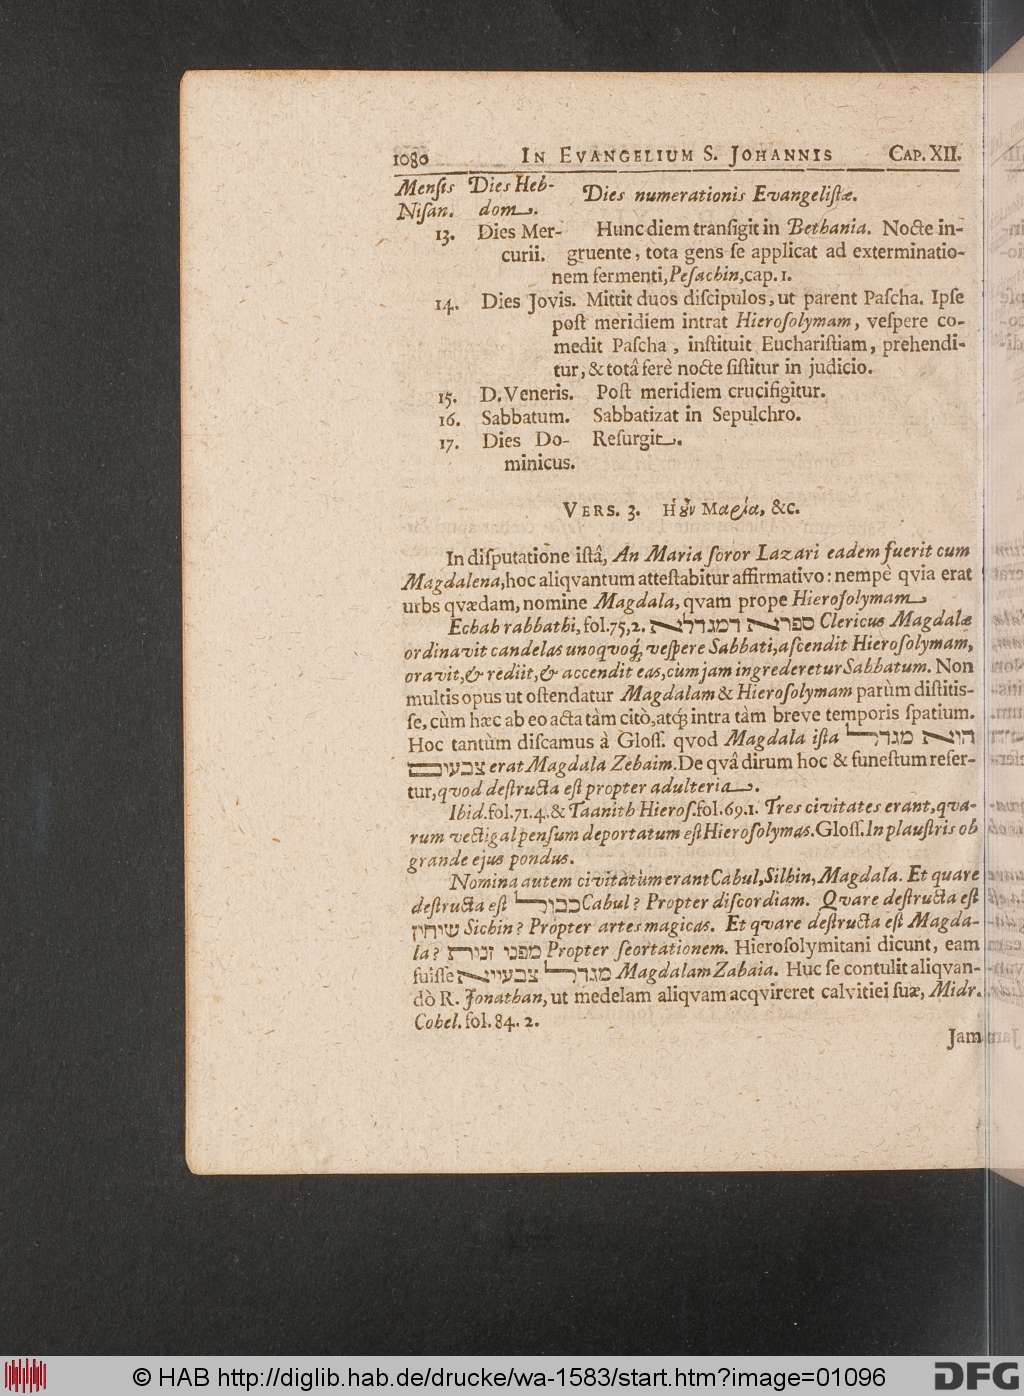 1080 IN EVANGELIUM S. JOHANNIS CAP. XII.
Mensis Dies Heb- Dies numerationis Evangelistæ.
Nisan. dom.
13. Dies Mer- Hunc diem transigit in Bethania. Nocte in-
curii. gruente, tota gens se applicat ad exterminatio-
nem fermenti, Pesachin, cap. 1.
14. Dies Jovis. Mittit duos discipulos, ut parent Pascha. Ipse
post meridiem intrat Hierosolymam, vespere co-
medit Pascha, instituit Eucharistiam, prehendi-
tur, & totâ ferè nocte sistitur in judicio.
15. D. Veneris. Post meridiem crucifigitur.
16. Sabbatum. Sabbatizat in Sepulchro.
17. Dies Do- Resurgit.
minicus.
VERS. 3. Ἡ οὖν Μαρία, &c.
In disputatione istâ, An Maria soror Lazari eadem fuerit cum
Magdalena, hoc aliqvantum attestabitur affirmativo: nempè qvia erat
urbs qvædam, nomine Magdala, qvam prope Hierosolymam
Echab rabbathi, fol. 75, 2. ספרא דמגדלא Clericus Magdalæ
ordinavit candelas unoqvoq; vespere Sabbati, ascendit Hierosolymam,
oravit, & rediit, & accendit eas, cum jam ingrederetur Sabbatum. Non
multis opus ut ostendatur Magdalam & Hierosolymam parùm distitis-
se, cùm hæc ab eo acta tàm citò, atq; intra tàm breve temporis spatium.
Hoc tantùm discamus à Gloss. qvod Magdala ista הוא מגדל
צבעים erat Magdala Zebaim. De qvâ dirum hoc & funestum refer-
tur, quod destructa est propter adulteria.
Ibid. fol. 71. 4. & Taanith Hieros. fol. 69. 1. Tres civitates erant, qva-
rum vectigal pensum deportatum est Hierosolymas. Gloss. In plaustris ob
grande ejus pondus.
Nomina autem civitatum erant Cabul, Silhin, Magdala. Et quare
destructa est כבול Cabul? Propter discordiam. Qvare destructa est
שיחין Sichin? Propter artes magicas. Et qvare destructa est Magda-
la? מפני זנות Propter scortationem. Hierosolymitani dicunt, eam
fuisse מגדל צבעייא Magdalam Zabaia. Huc se contulit aliqvan-
dò R. Jonathan, ut medelam aliqvam acqvireret calvitiei suæ, Midr.
Cohel. fol. 84. 2.
Jam
© HAB http://diglib.hab.de/drucke/wa-1583/start.htm?image=01096
DFG